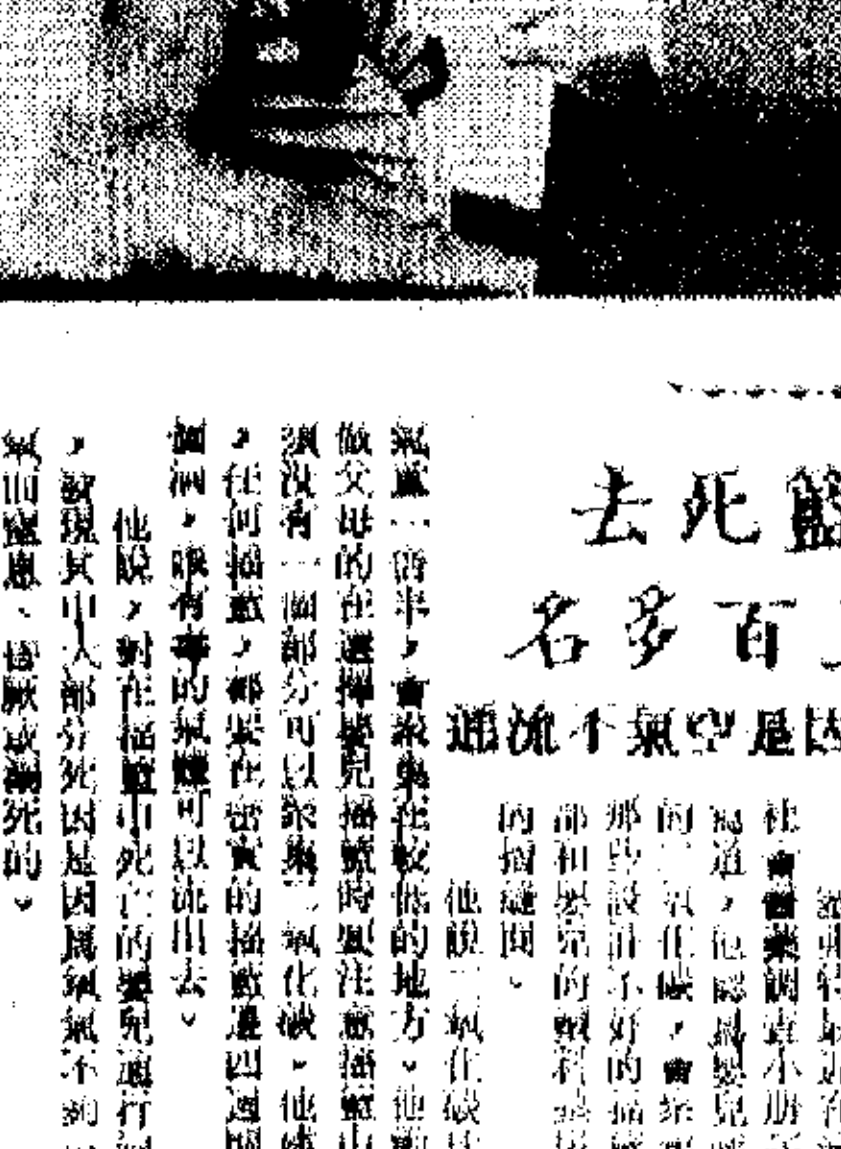 籃死去
百多名
因是空氣不流通
特最近在
社會醫藥調查小冊
寫道，他認為嬰兒
的二氧化碳，會
那些設計不好的搖籃
部和嬰兒的
的摺縫間。
他說二氧化碳比
氣重一倍半，會聚集在較低的地方。他勸
做父母的在選擇嬰兒搖籃時要注意搖籃中
須沒有一個部分可以聚集二氧化碳。他建
，任何搖籃，都要在密實的搖籃邊四週開
個洞，讓有毒的氣體可以流出去。
他說，對在搖籃中死亡的嬰兒進行
，發現其中大部分死因是因為氧氣不夠
氧而窒息、昏厥或溺死的。